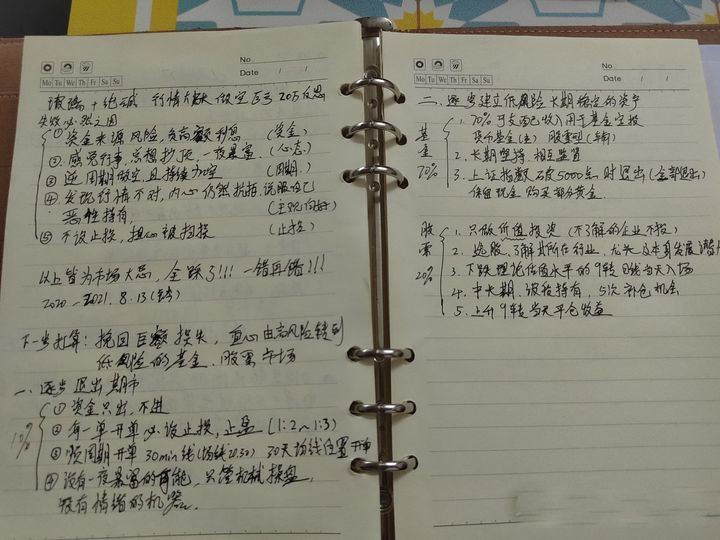 No.
Date / /
Mo Tu We Th Fr Sa Su
玻璃+纯碱 行情 做空巨亏20万反思
失败必然之因
① 资金来源风险,负高额利息 (资金)
② 感觉行事,总想抄顶,一夜暴富.(心态.)
③ 逆周期做空,且持续加空 (周期.)
④ 发现行情不对,内心仍然抗拒.说服自己
恶性持有, (主观向好)
⑤ 不设止损,担心被扫损 (止损)
以上皆为市场大忌,全踩了!!! 一错再错!!!
2020-2021.8.13
下一步打算:挽回巨额损失,重心由高风险转到
低风险的基金、股票市场
一、逐步退出期市
10%
① 资金只出,不进
② 每一单开单必设止损,止盈 (1:2~1:3)
③ 顺周期开单 30min线(均线20.30) 30天均线位置开单
④ 没有一夜暴富的可能,只管机械操盘,
没有情绪的机器.
No.
Date / /
Mo Tu We Th Fr Sa Su
二、逐步建立低风险 长期稳定的资产
基金70%
1. 70%可支配收入用于基金定投
货币基金(主) 股票型(辅)
2. 长期坚持,相互监督
3. 上证指数 再度5000点时退出(全部退出)
保留现金 购买部分黄金.
股票20%
1. 只做价值投资 (不了解的企业不投)
2. 选股、了解其所在行业、龙头及本身发展潜力
3. 下跌理论估值水平的9转日线当天入场
4. 中长期、波段持有,5次补仓机会
5. 上升9转当天平仓收益